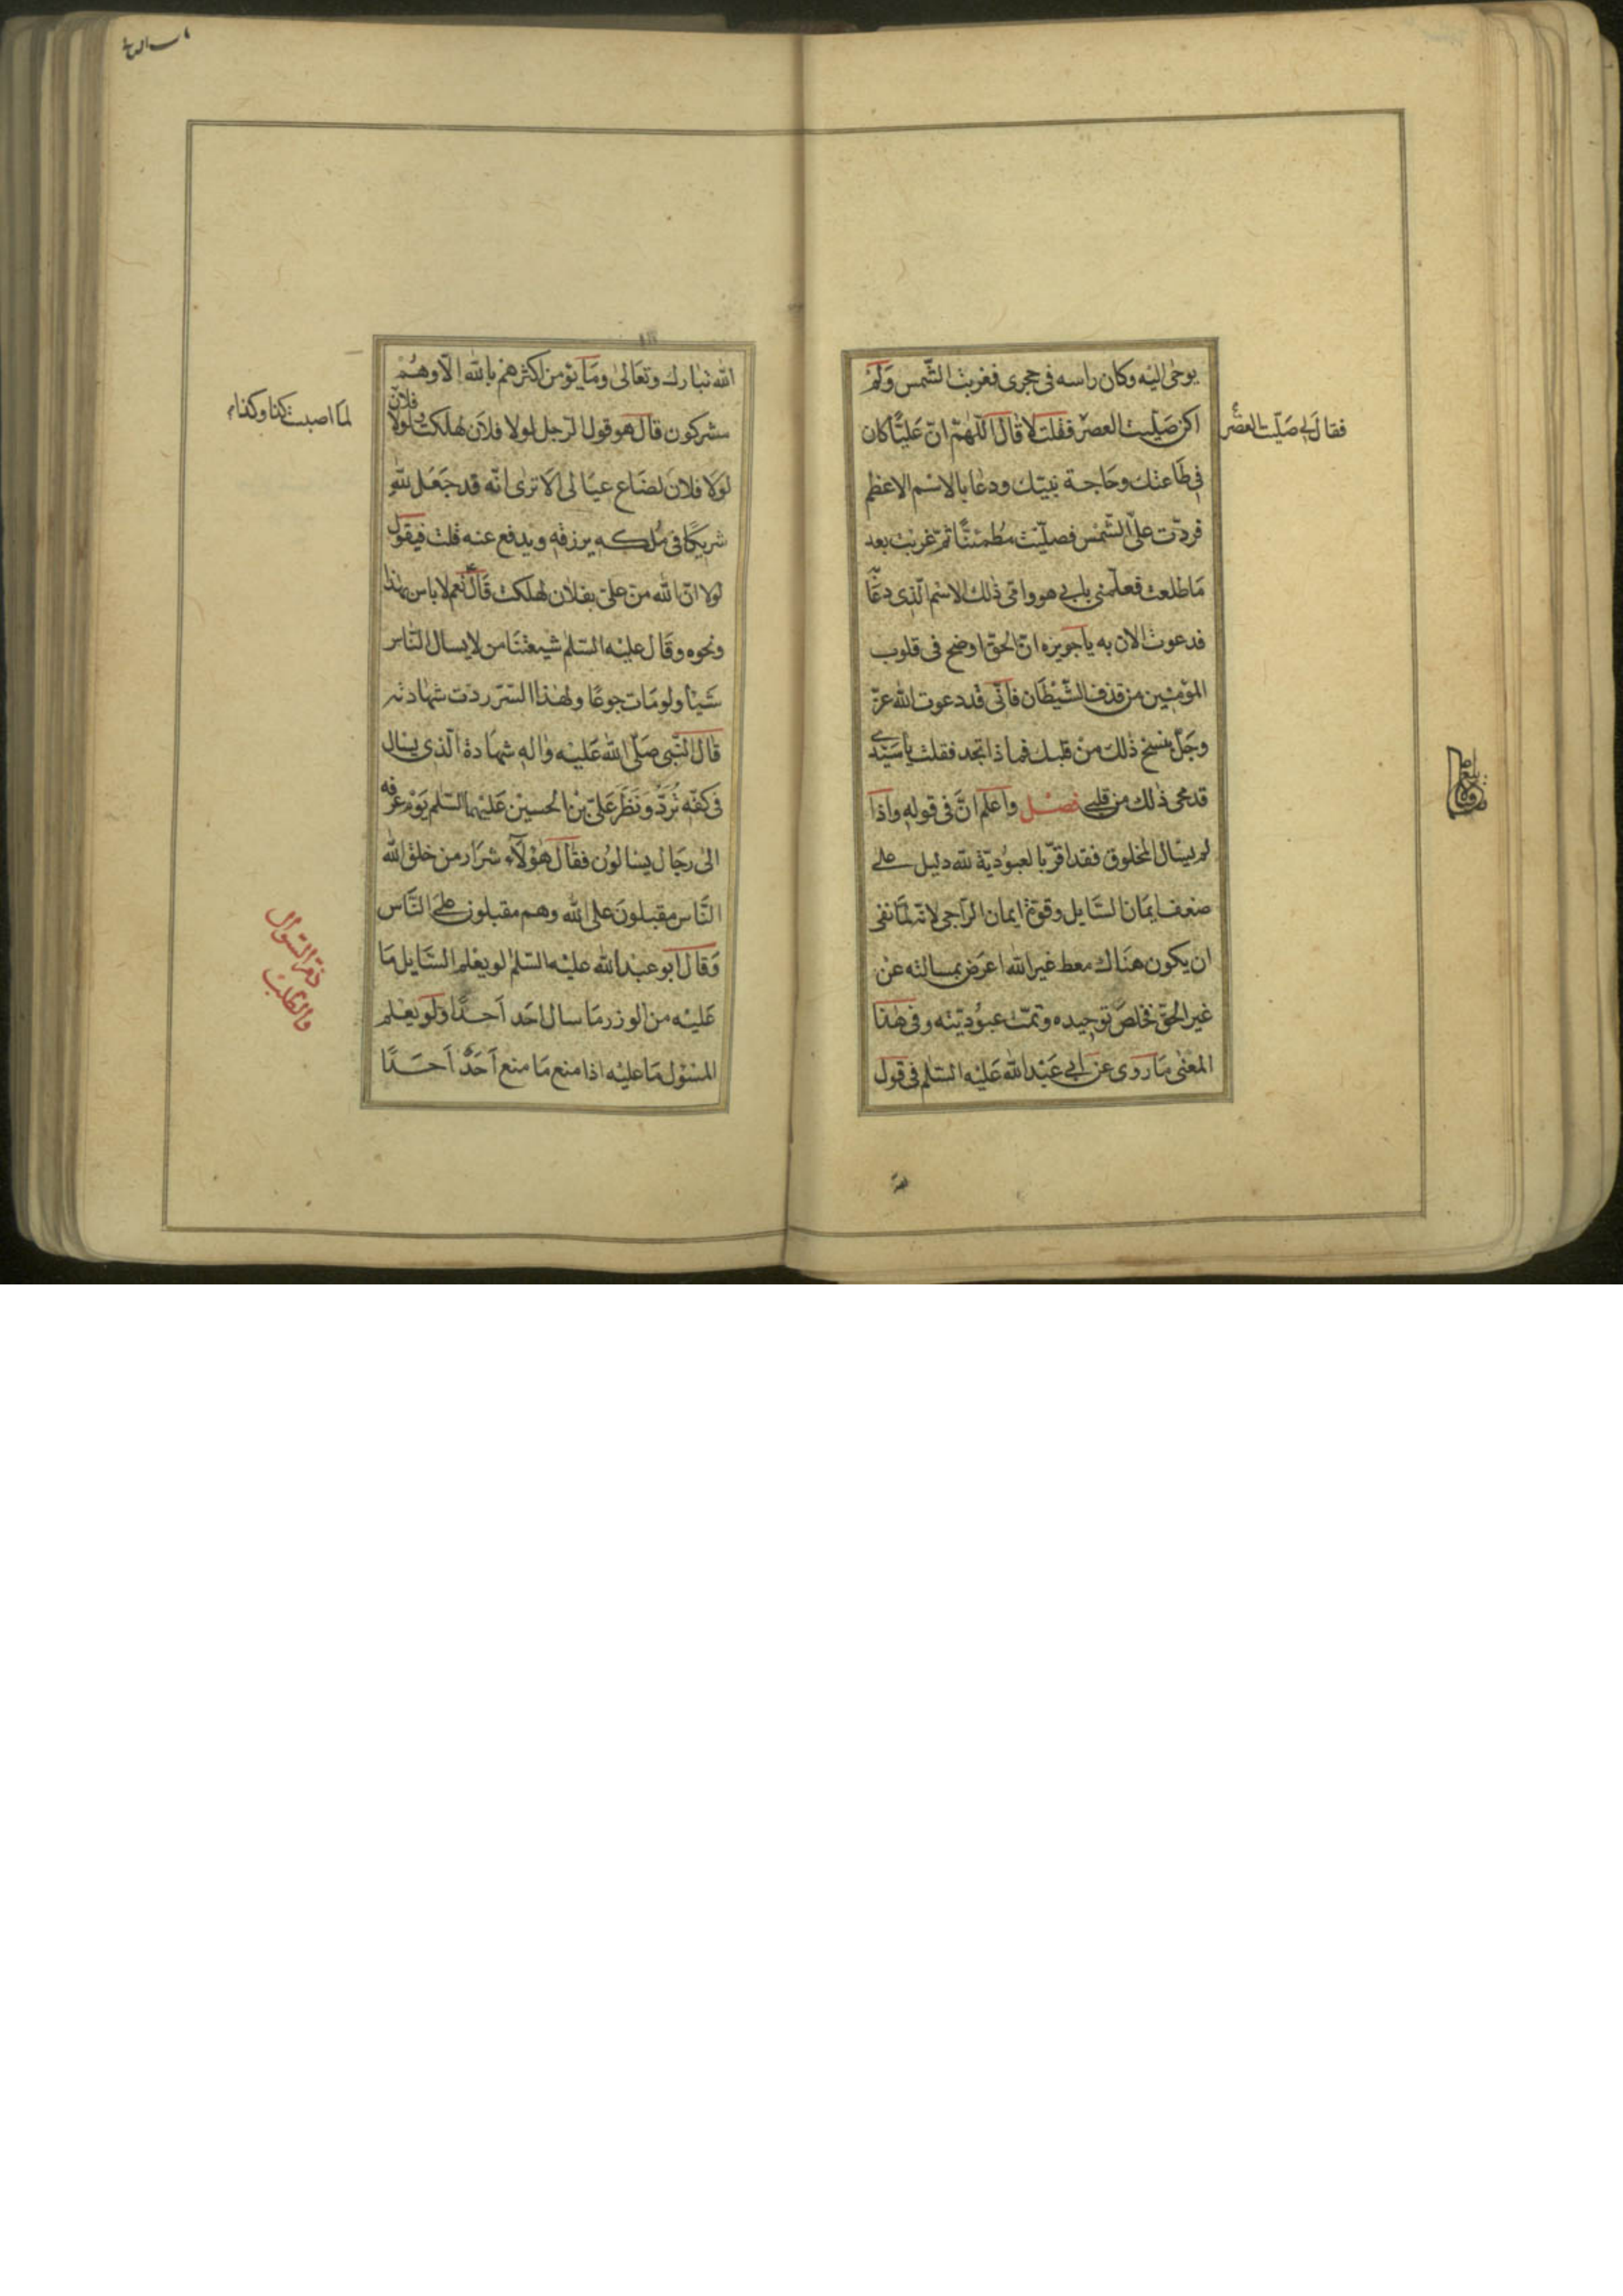 يوحى اليه وكان راسه فى حجرى فغربت الشمس ولم
اكن صليت العصر فقلت لا قال اللهم ان عليا كان
فى طاعتك وحاجة نبيك ودعا بالاسم الاعظم
فردت على الشمس فصليت مطمئنا ثم غربت بعد
ما طلعت فعلمنى بابى هو وامى ذلك الاسم الذى دعا
فدعوت الان به يا جويره ان الحق اوضح فى قلوب
المؤمنين من قذف الشيطان فانى قد دعوت الله عز
وجل بنسخ ذلك من قلبك فماذا تجد فقلت يا سيدى
قد محى ذلك من قلبى فصل واعلم ان فى قوله واذا
لم يسال المخلوق فقد اقر بالعبودية لله دليل على
ضعف ايمان السايل وقوة ايمان الراجى لانه لما نفى
ان يكون هناك معط غير الله اعرض بمسالته عن
غير الحق فخلص توحيده وتمت عبوديته وفى هذا
المعنى ما روى عن ابى عبد الله عليه السلم فى قول
فقال لى صليت العصر
الله تبارك وتعالى وما يؤمن اكثرهم بالله الا وهم
مشركون قال هو قول الرجل لولا فلان لهلكت ولولا فلان
لولا فلان لضاع عيالى الا ترى انه قد جعل لله
شريكا فى ملكه يرزقه ويدفع عنه قلت فيقول
لولا ان الله من على بفلان لهلكت قال نعم لا باس بهذا
ونحوه وقال عليه السلم شيعتنا من لا يسال الناس
شيئا ولو مات جوعا ولهذا السر ردت شهادته
قال النبى صلى الله عليه واله شهادة الذى يسال
فى كفه ترد ونظر على بن الحسين عليهما السلم يوم عرفه
الى رجال يسالون فقال هؤلاء شرار من خلق الله
الناس مقبلون على الله وهم مقبلون على الناس
وقال ابو عبد الله عليه السلم لو يعلم السايل ما
عليه من الوزر ما سال احد احدا ولو يعلم
المسئول ما عليه اذا منع ما منع احد احدا
لما اصبت كذا وكذا
ذم السؤال
والطلب